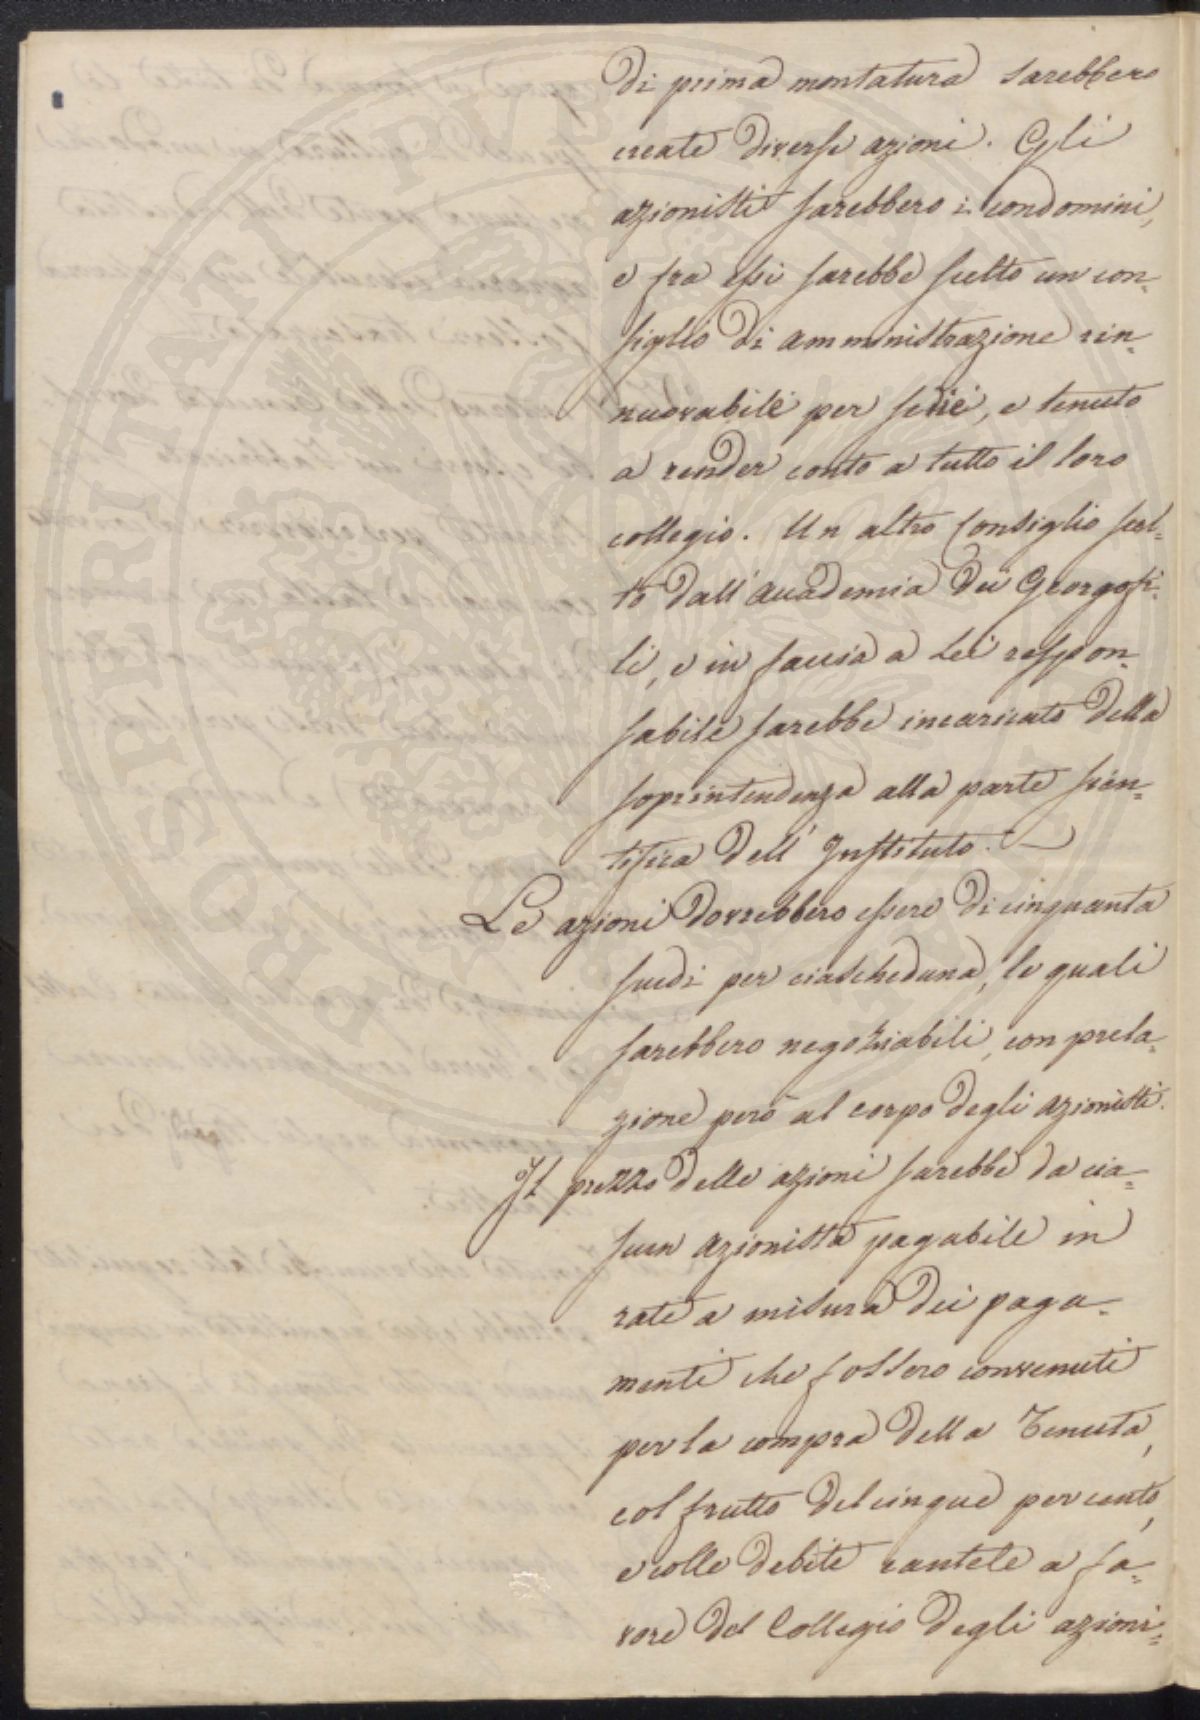 di prima montatura sarebbero
create diverse azioni. Gli
azionisti sarebbero i condomini,
e fra essi sarebbe scelto un con=
siglio di amministrazione rin=
nuovabile per serie, e tenuto
a render conto a tutto il loro
collegio. Un altro Consiglio scel=
to dall'Accademia dei Georgofi=
li, e in faccia a Lei respon=
sabile sarebbe incaricato della
soprintendenza alla parte scien=
tifica dell'Instituto.
Le azioni dovrebbero essere di cinquanta
scudi per ciascheduna, le quali
sarebbero negoziabili, con prela=
zione però al corpo degli azionisti.
Il prezzo delle azioni sarebbe da cia=
scun azionista pagabile in
rate a misura dei paga=
menti che fossero convenuti
per la compra della Tenuta,
col frutto del cinque per cento,
e colle debite cautele a fa=
vore del Collegio degli azioni=
PROSPERITATI PVBLICAE